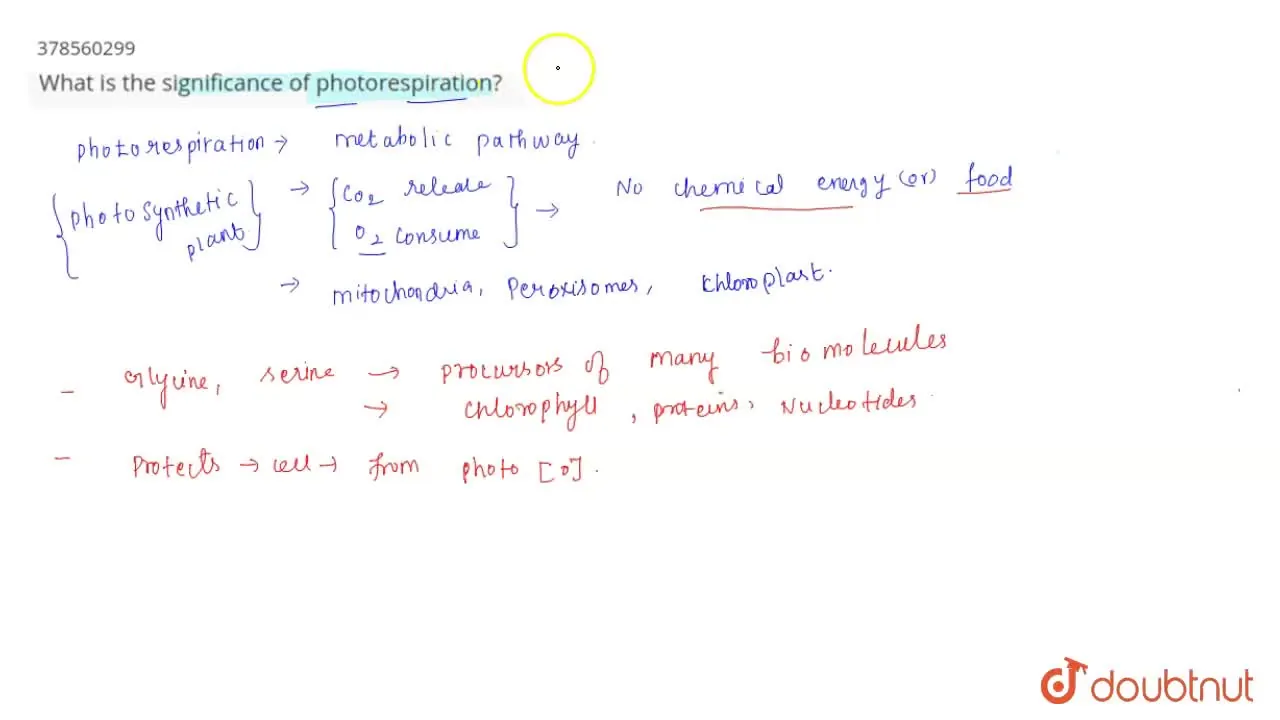 378560299
What is the significance of photorespiration?
photorespiration → metabolic pathway.
{photosynthetic plant} → {CO2 release O2 consume} → No chemical energy (or) food
→ mitochondria, Peroxisomes, chloroplast.
- Glycine, serine → procursors of many biomolecules
→ chlorophyll, proteins, Nucleotides.
- Protects → cell → from photo [O].
doubtnut